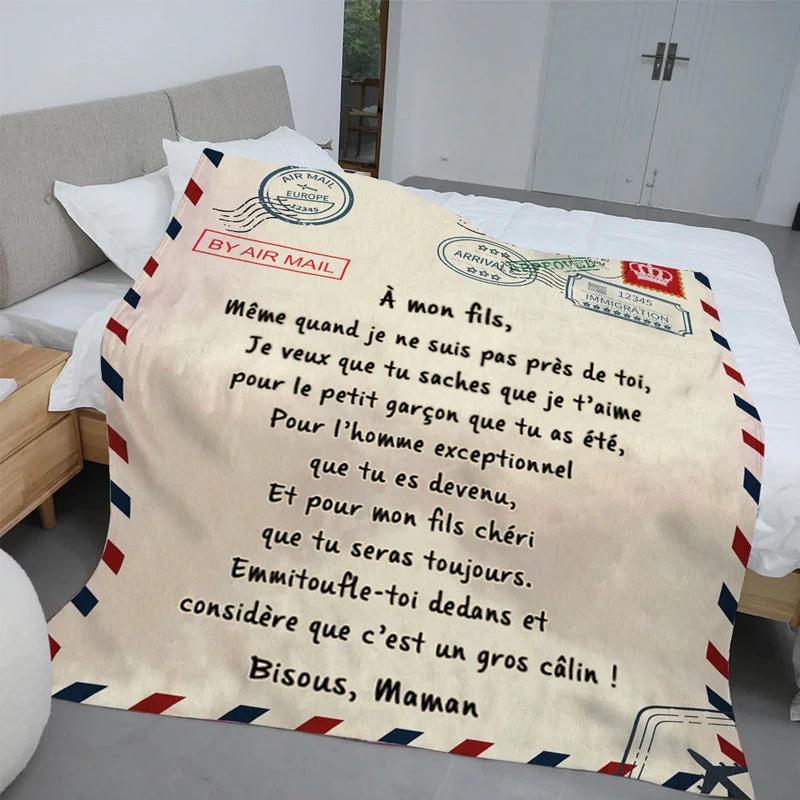 AIR MAIL
EUROPE
12345
BY AIR MAIL
ARRIVAL
APPROVED
12345
IMMIGRATION
À mon fils,
Même quand je ne suis pas près de toi,
Je veux que tu saches que je t'aime
pour le petit garçon que tu as été,
Pour l'homme exceptionnel
que tu es devenu,
Et pour mon fils chéri
que tu seras toujours.
Emmitoufle-toi dedans et
considère que c'est un gros câlin !
Bisous, Maman